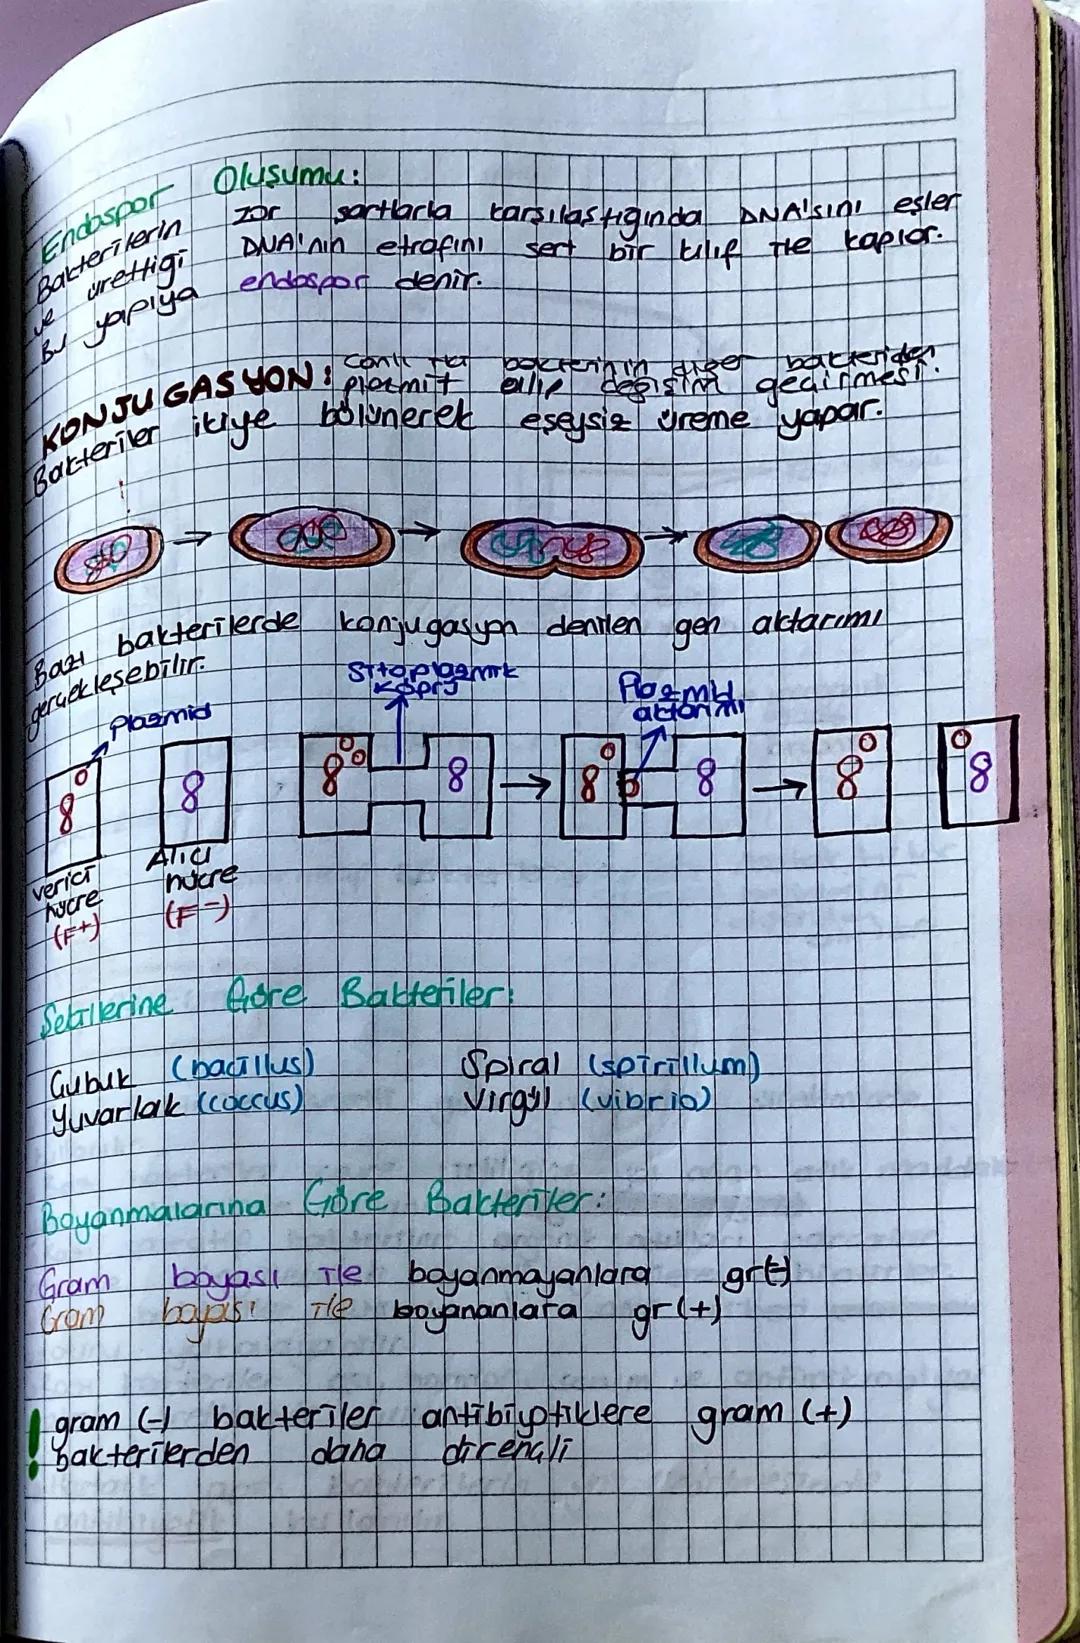 Endospor Oluşumu:
Bakterilerin zor şartlarla karşılaştığında DNA'sını eşler
ve ürettiği DNA'nın etrafını sert bir kılıf ile kaplar.
Bu yapıya endospor denir.
KONJUGASYON: Canlı bakterinin diğer bakteriden
plazmit alıp değişim geçirmesi.
Bakteriler ikiye bölünerek eşeysiz üreme yapar.
Bazı bakterilerde konjugasyon denilen gen aktarımı
gerçekleşebilir.
Sitoplazmik
köprü
Plazmid
aktarımı
Plazmid
8 8 8 8 8 8 8 8
Verici
hücre
(F+)
Alıcı
hücre
(F-)
Şekillerine Göre Bakteriler:
Çubuk (bacillus) Spiral (spirillum)
Yuvarlak (coccus) Virgül (vibrio)
Boyanmalarına Göre Bakteriler:
Gram boyası ile boyanmayanlara gr(-)
Gram boyası ile boyananlara gr(+)
! gram (-) bakteriler antibiyotiklere gram (+)
bakterilerden daha dirençli